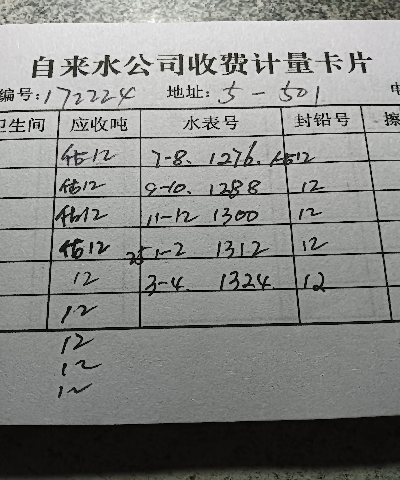 自来水公司收费计量卡片
编号:172224 地址:5-501
卫生间 应收吨 水表号 封铅号 擦
估12 7-8. 1276. 估12
估12 9-10. 1288 12
估12 11-12 1300 12
估12 25 1-2 1312 12
12 3-4. 1324 12
12
12
12
12